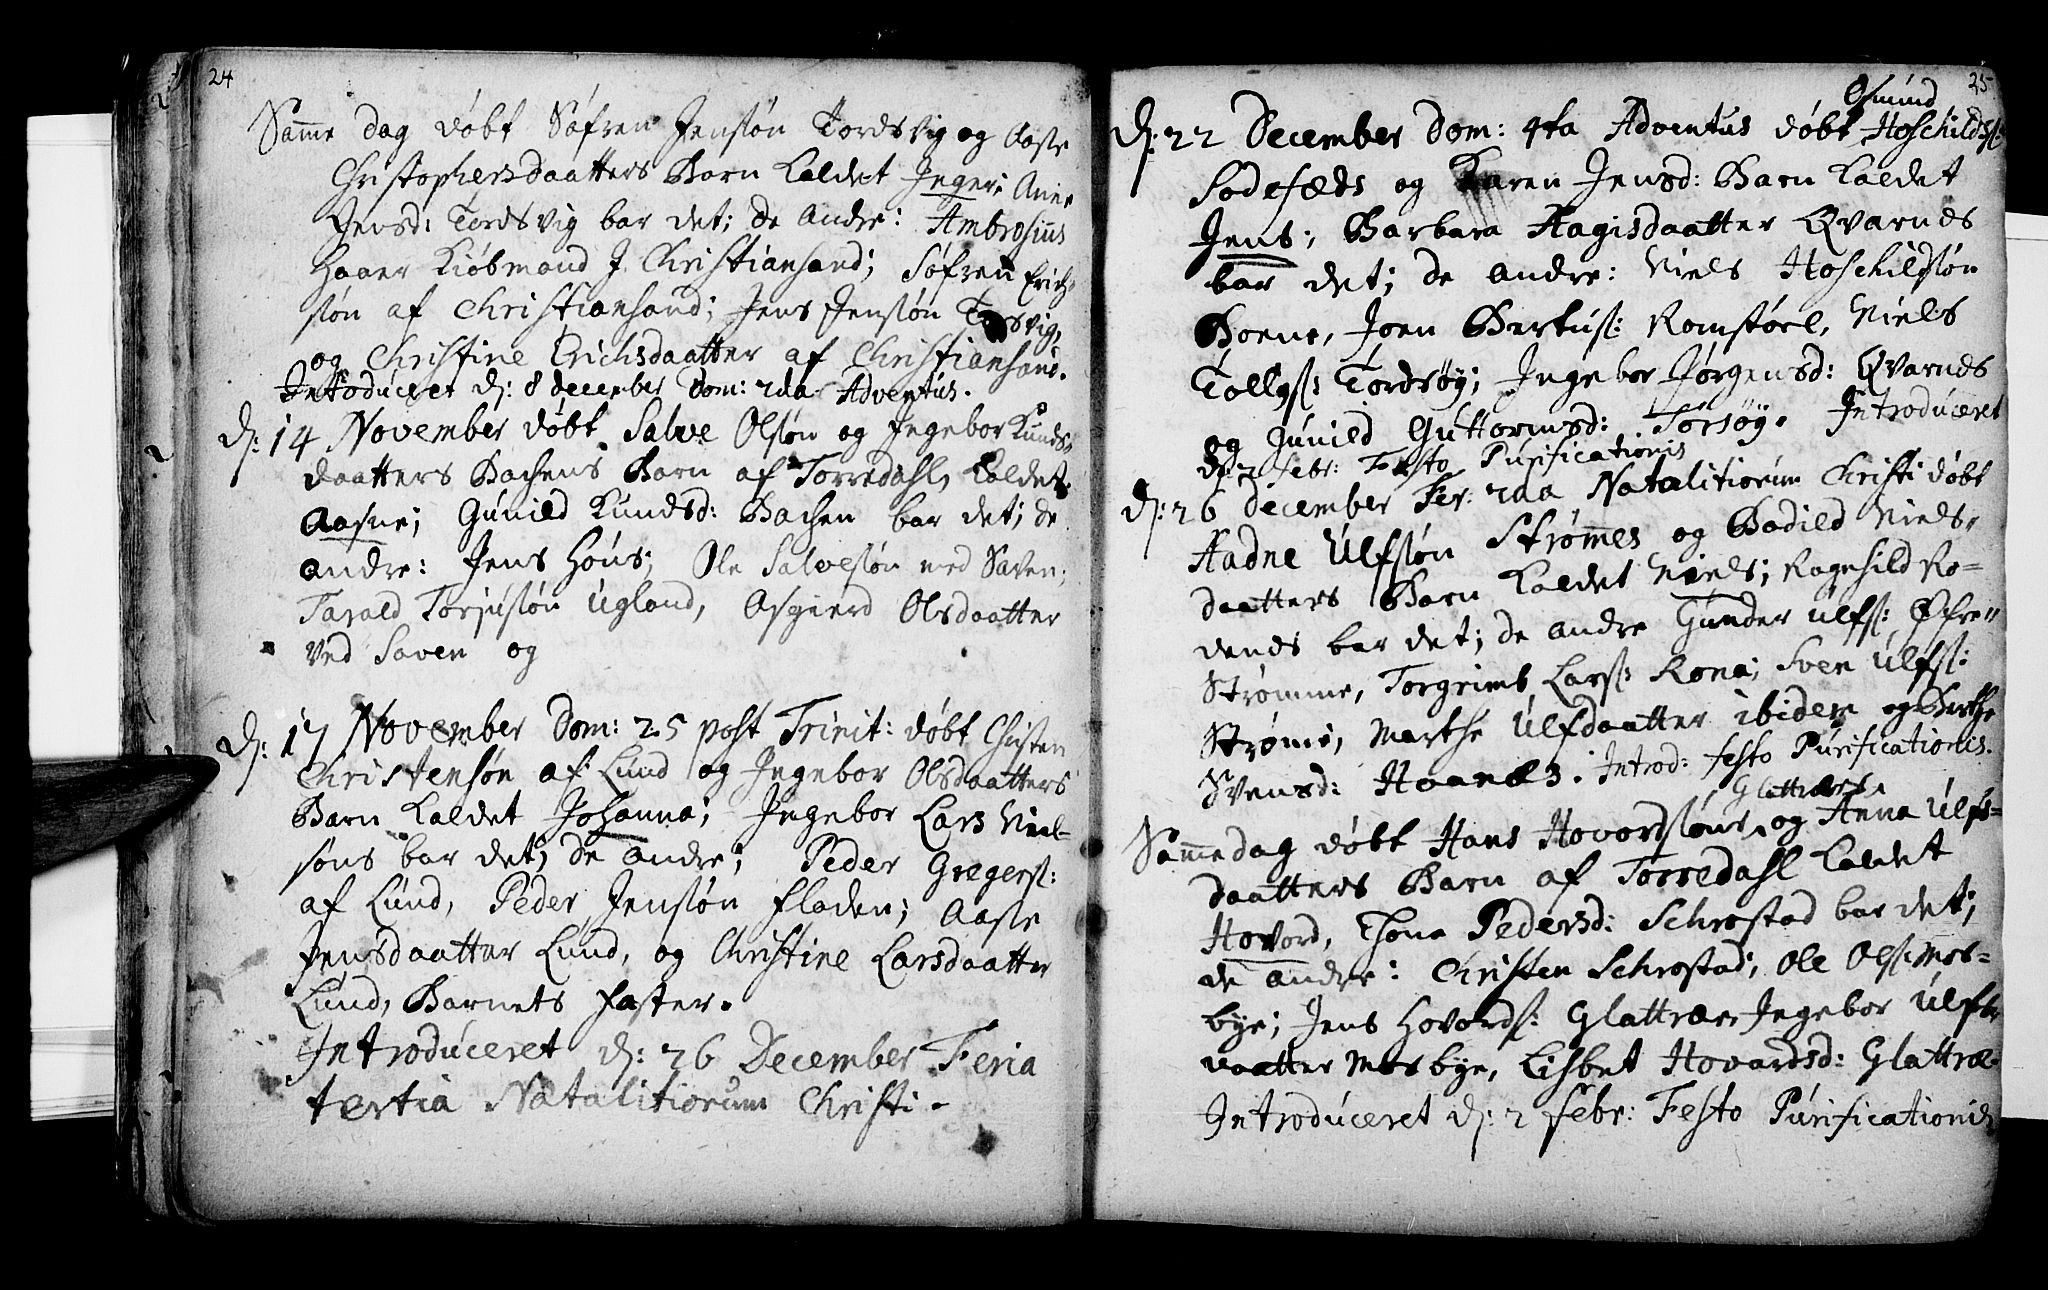 24
Samme dag döbt Söfren Jensön Tordsvig og Aase
Christophersdaatters Barn kaldet Jnger; Anne
Jensd: Tordsvig bar det; de andre: Ambrosius
Haaer Kiöbmand J Christiansand; Söfren Erich-
sön af Christiansand; Jens Jensön Torsvig,
og Christine Erichsdaatter af Christiansand.
Introduceret d: 8 december Dom: 2da Adventus.
d: 14 November döbt Salve Olsön og Jngebor Knuds-
daatters Bachens Barn af Torredahl, kaldet
Aasne; Gunild Knudsd: Bachen bar det; de
andre: Jens Höus; Ole Salvesön ved Saven;
Tarald Torjusön Ugland, Asgierd Olsdaatter
ved Saven og
d: 17 November Dom: 25 post Trinit: döbt Christen
Christensön af Lund og Jngebor Olsdaatters
Barn kaldet Johanna; Jngebor Lars Niel-
söns bar det; de andre; Peder Gregers:
af Lund, Peder Jensön fladen; Aase
Jensdaatter Lund, og Christine Larsdaatter
Lund, Barnets faster.
Introduceret d: 26 December Feria
tertia Natalitiorum Christi.
25
Osmund
d: 22 December Dom: 4ta Adventus döbt Hoschilds:
Sodefæds og Karen Jensd: Barn kaldet
Jens; Barbara Aagisdaatter Qvarnes
bar det; de andre: Niels Hoschildsön
Boene, Joen Bertus: Romstöel, Niels
Tollgs: Tordsöy; Jngebor Jörgensd: Qvarnes
og Gunild Guttormsd: Torsöy. Introduceret
d: 2 febr: Festo Purificationis
d: 26 December Fer: 2da Natalitiorum Christi döbt
Aadne Ulfsön Strömmes og Bodild Niels-
daatters Barn kaldet Niels; Ragehild Ro-
dends bar det; de andre Gunder Ulfs: Öfre-
Strömme, Torgrimb Lars: Rona; Sven Ulfs:
Ströme, Marthe Ulfdaatter ibidem og Berthe
Svensd: Haanes. Introd: festo Purificationis.
Glattræes
Samme dag döbt Hans Hovordsöns og Anna Ulfs-
daatters Barn af Torredahl kaldet
Hovord, Thone Pedersd: Schrostad bar det;
de andre: Christen Schrostad; Ole Ols: Mos-
bye; Jens Hovords: Glattræe Jngebor Ulfs-
daatter Mosbye, Lisbet Hovardsd: Glattræ-
Introduceret d: 2 febr: Festo Purificationis